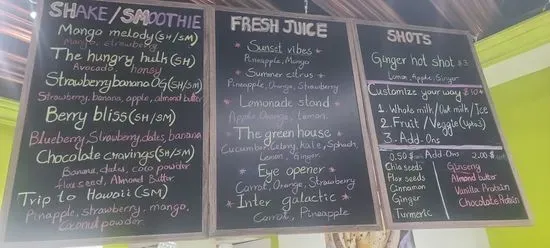 SHAKE/SMOOTHIE
Mango melody (SH/SM)
Mango, strawberry
The hungry hulk (SH)
Avocado honey
Strawberry banana OG (SH/SM)
Strawberry, banana, apple, almond butter
Berry bliss (SH/SM)
Blueberry, Strawberry, dates, banana
Chocolate cravings (SH/SM)
Banana, dates, coco powder
flax seed, Almond Butter
Trip to Hawaii (SM)
Pineapple, strawberry, mango,
Coconut powder
FRESH JUICE
Sunset vibes
Pineapple, Mango
Summer citrus
Pineapple, Orange, Strawberry
Lemonade stand
Apple, Orange, Lemon
The green house
Cucumber, Celery, Kale, Spinach,
Lemon, Ginger
Eye opener
Carrot, Orange, Strawberry
Inter galactic
Carrot, Pineapple
SHOTS
Ginger hot shot $3
Lemon, Apple, Ginger
Customize your way $10+
1. Whole milk/Oat milk/Ice
2. Fruit/Veggie (Upto 3)
3. Add-Ons
0.50 $ Add-Ons 2.00 $
Chia seeds
Flax seeds
Cinnamon
Ginger
Turmeric
Ginseng
Almond butter
Vanilla Protein
Chocolate Protein